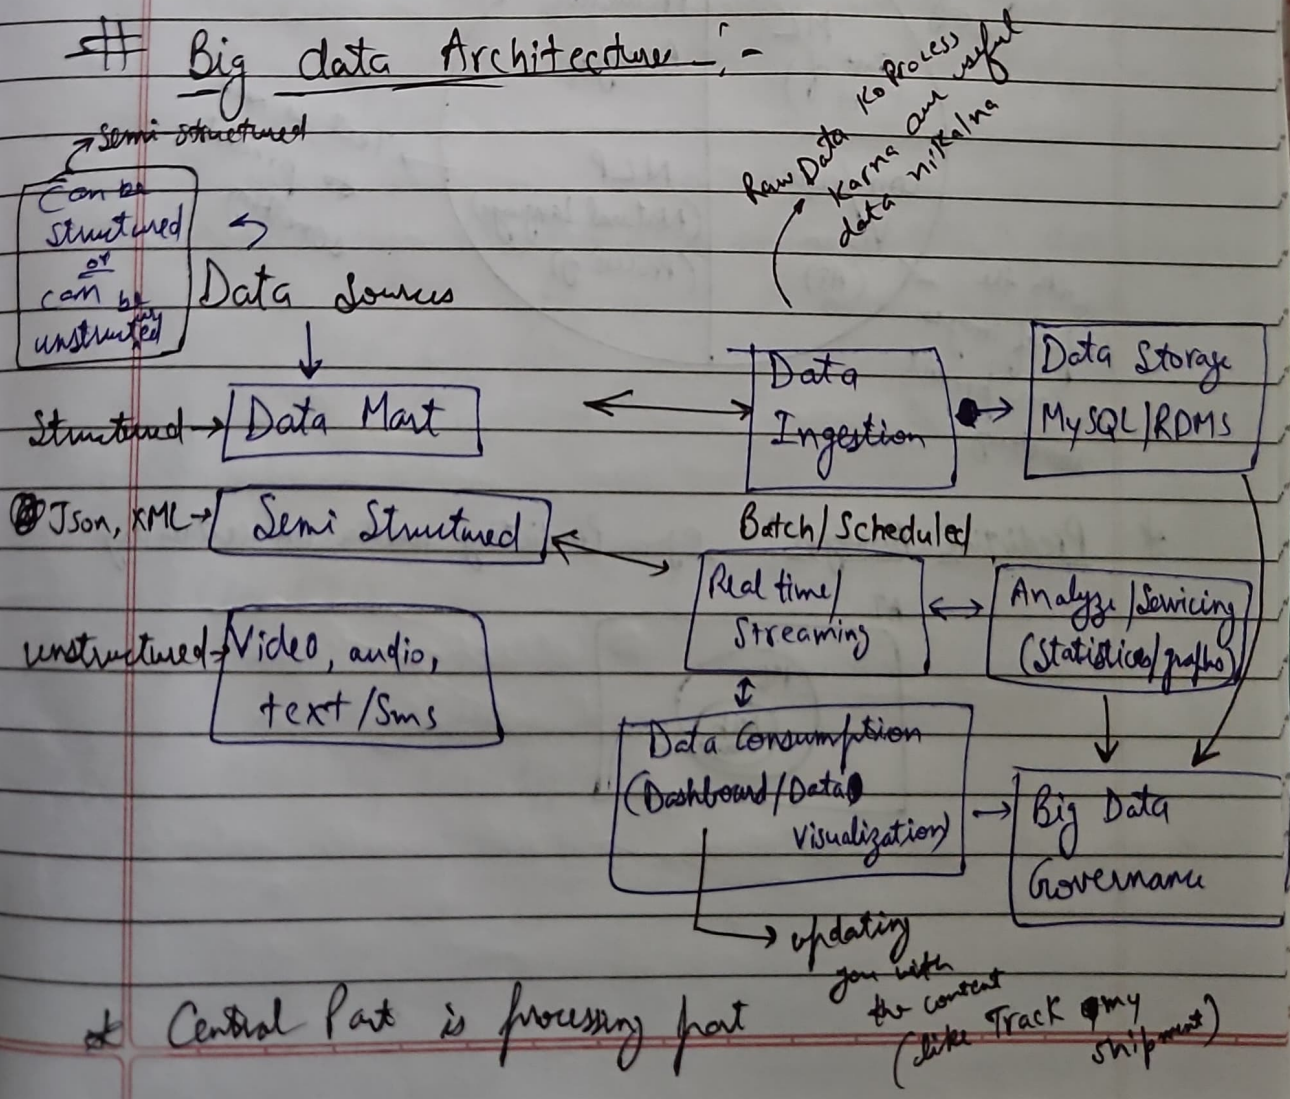 # Big data Architecture :-
Semi structured
Can be
structured
or
can be
unstructed
Data Sources
Raw Data Ko process
Karna aur useful
data nikalna
Structured → Data Mart
Data
Ingestion
Data Storage
MySQL/RDMS
Json, XML → Semi Structured
Batch/Scheduled
Real time/
Streaming
Analyze/Servicing
(Statistics/graphs)
unstructured → Video, audio,
text/Sms
Data Consumption
(Dashboard/Data
Visualization)
Big Data
Governance
updating
you with
the content
(like Track my
shipment)
* Central Part is processing part